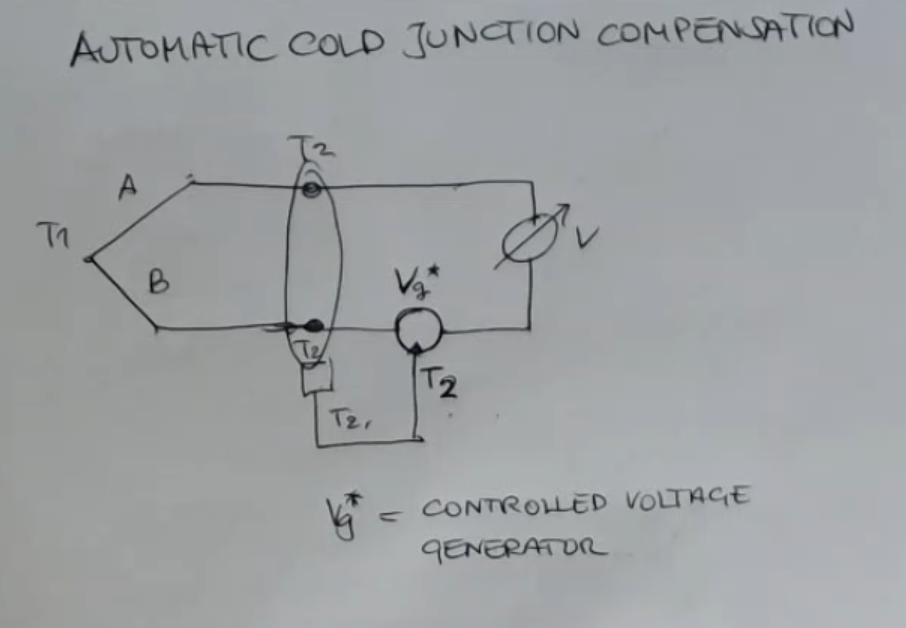 AUTOMATIC COLD JUNCTION COMPENSATION
T2
A
T1
B
V
Vg*
T2
T2
T2,
Vg* = CONTROLLED VOLTAGE
GENERATOR